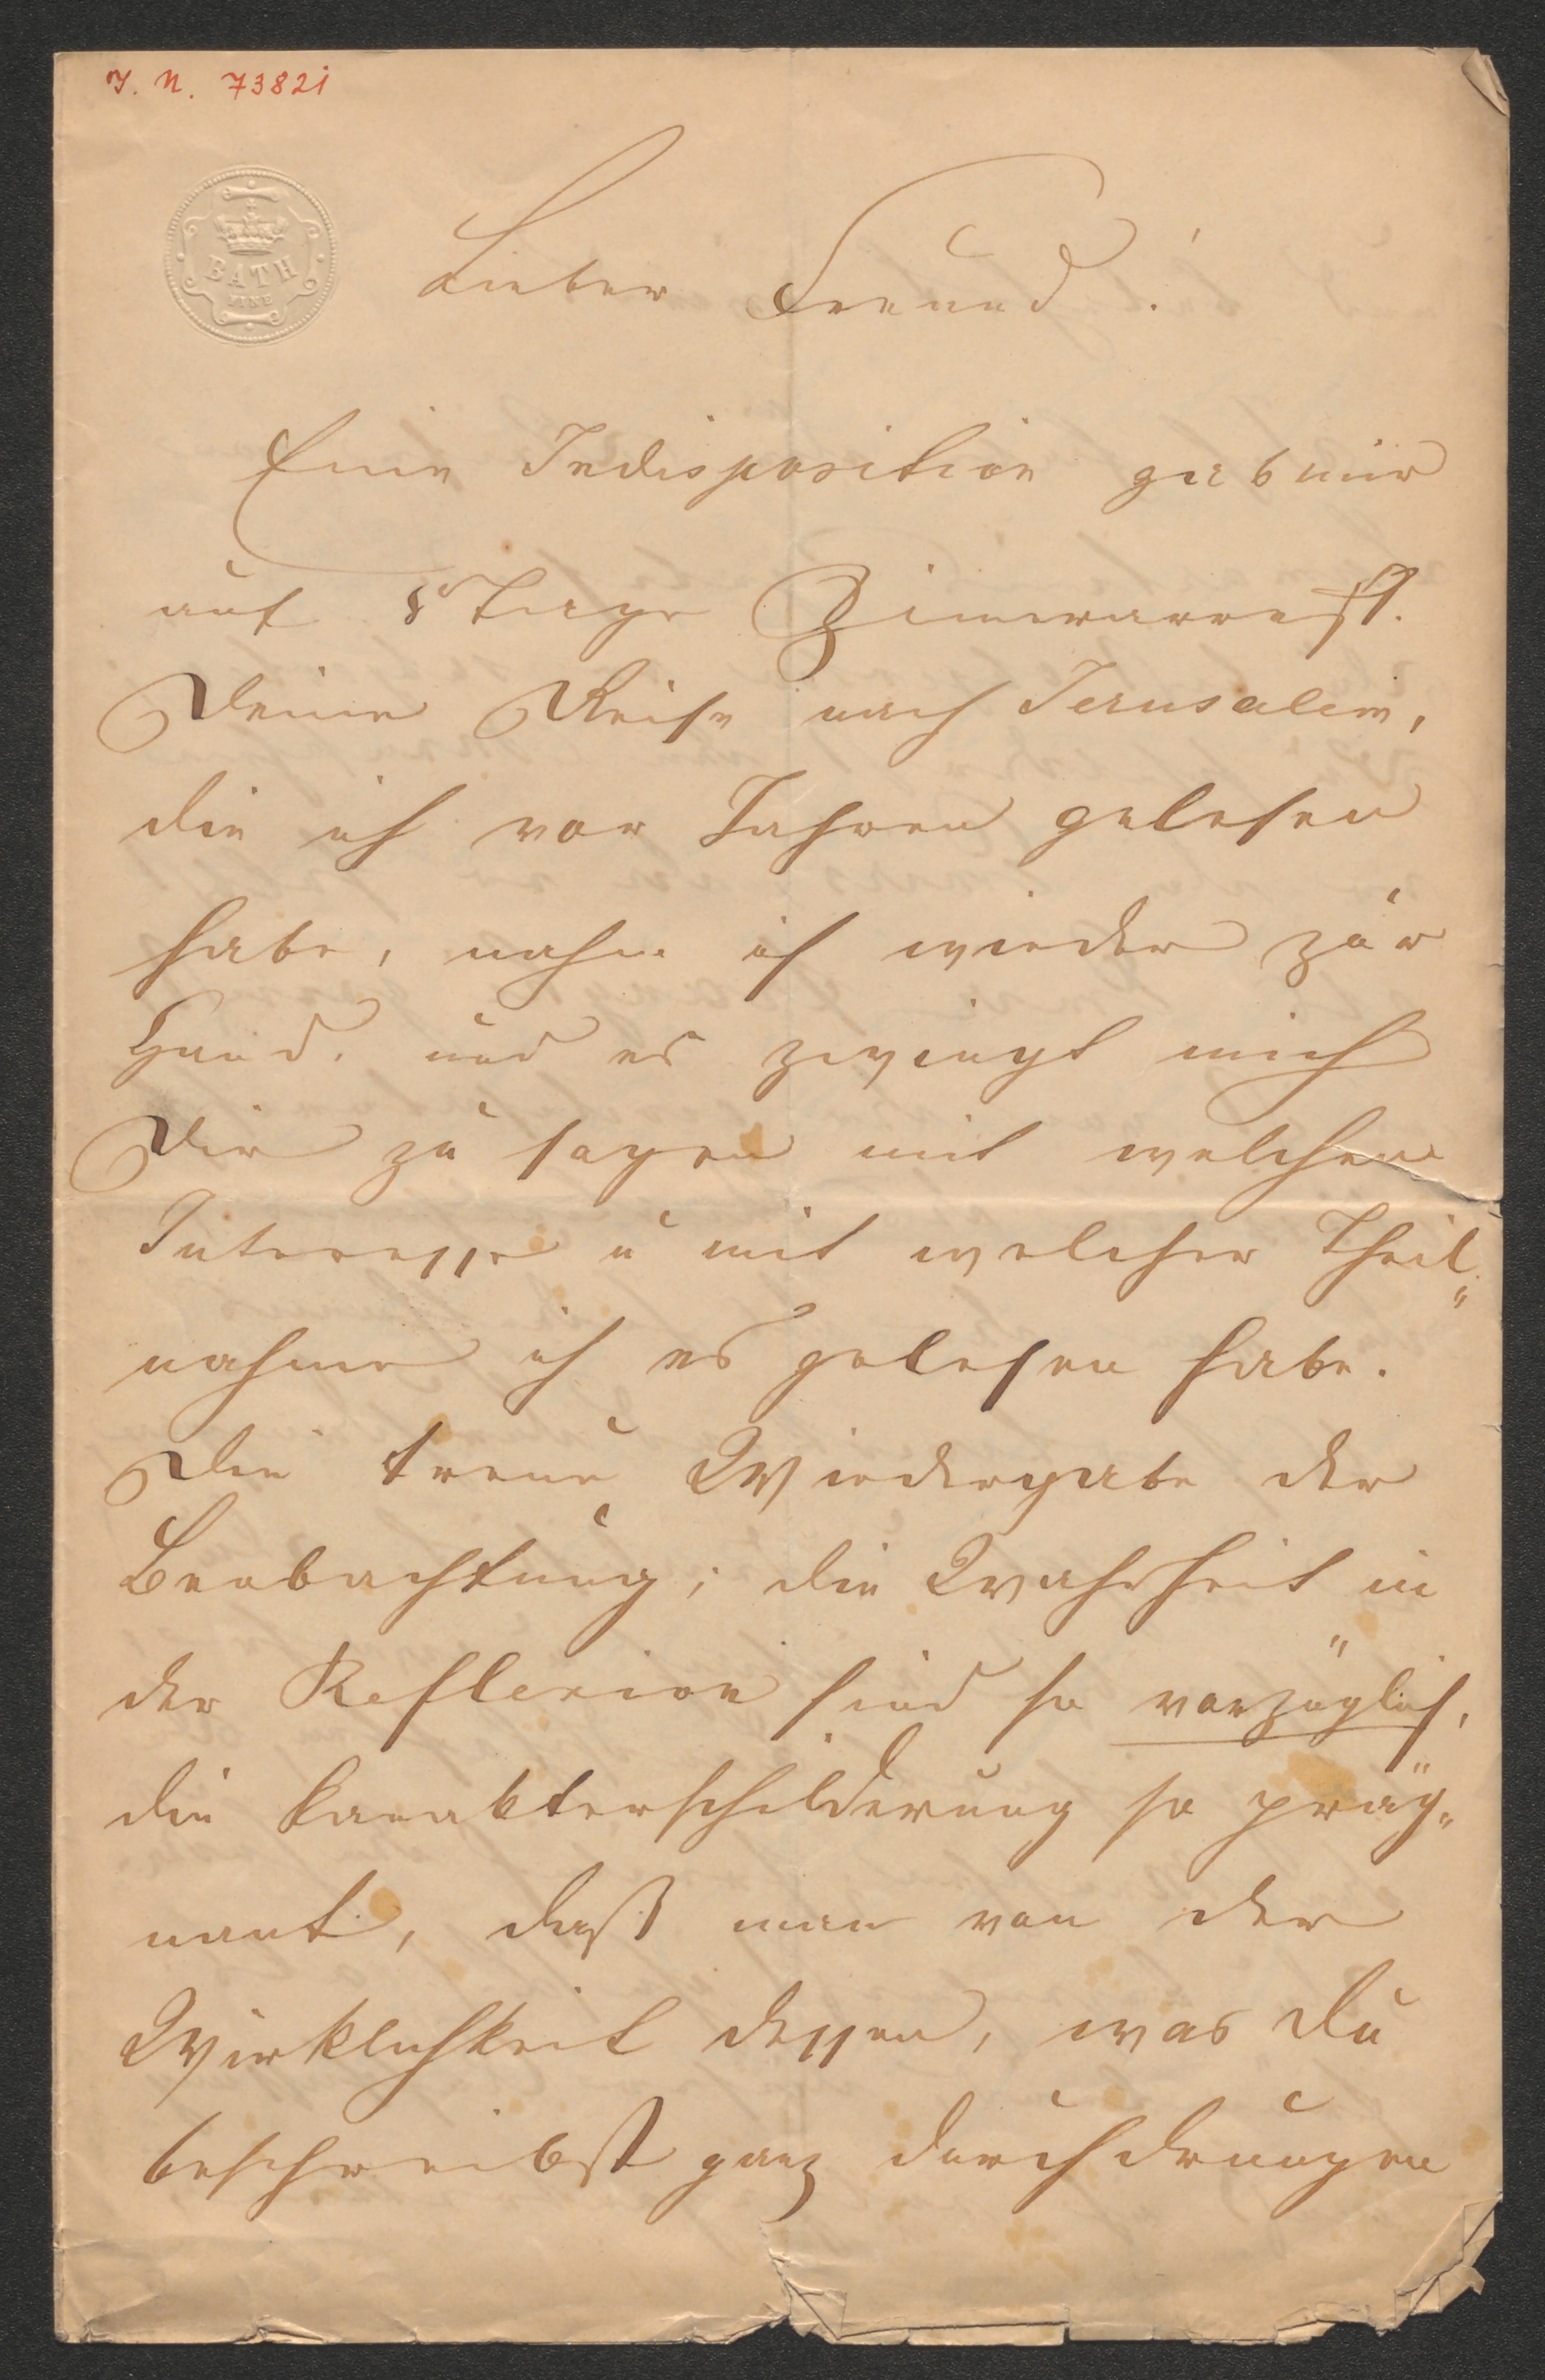 I. N. 73821
BATH
FINE
Lieber Freund!
Eine Indisposition gab mir
auf 8 Tage Zimerarrest.
Deine Reise nach Jerusalem,
die ich vor Jahren gelesen
habe, nahm ich wieder zur
Hand, und es zwingt mich
Dir zu sagen mit welchem
Interesse u mit welcher Theil=
nahme ich es gelesen habe.
Die treue Wiedergabe der
Beobachtung; die Wahrheit in
der Reflexion sind so vorzüglich,
die Karakterschilderung so präg=
nant, daß man von der
Wirklichkeit dessen, was Du
beschreibst ganz durchdrungen